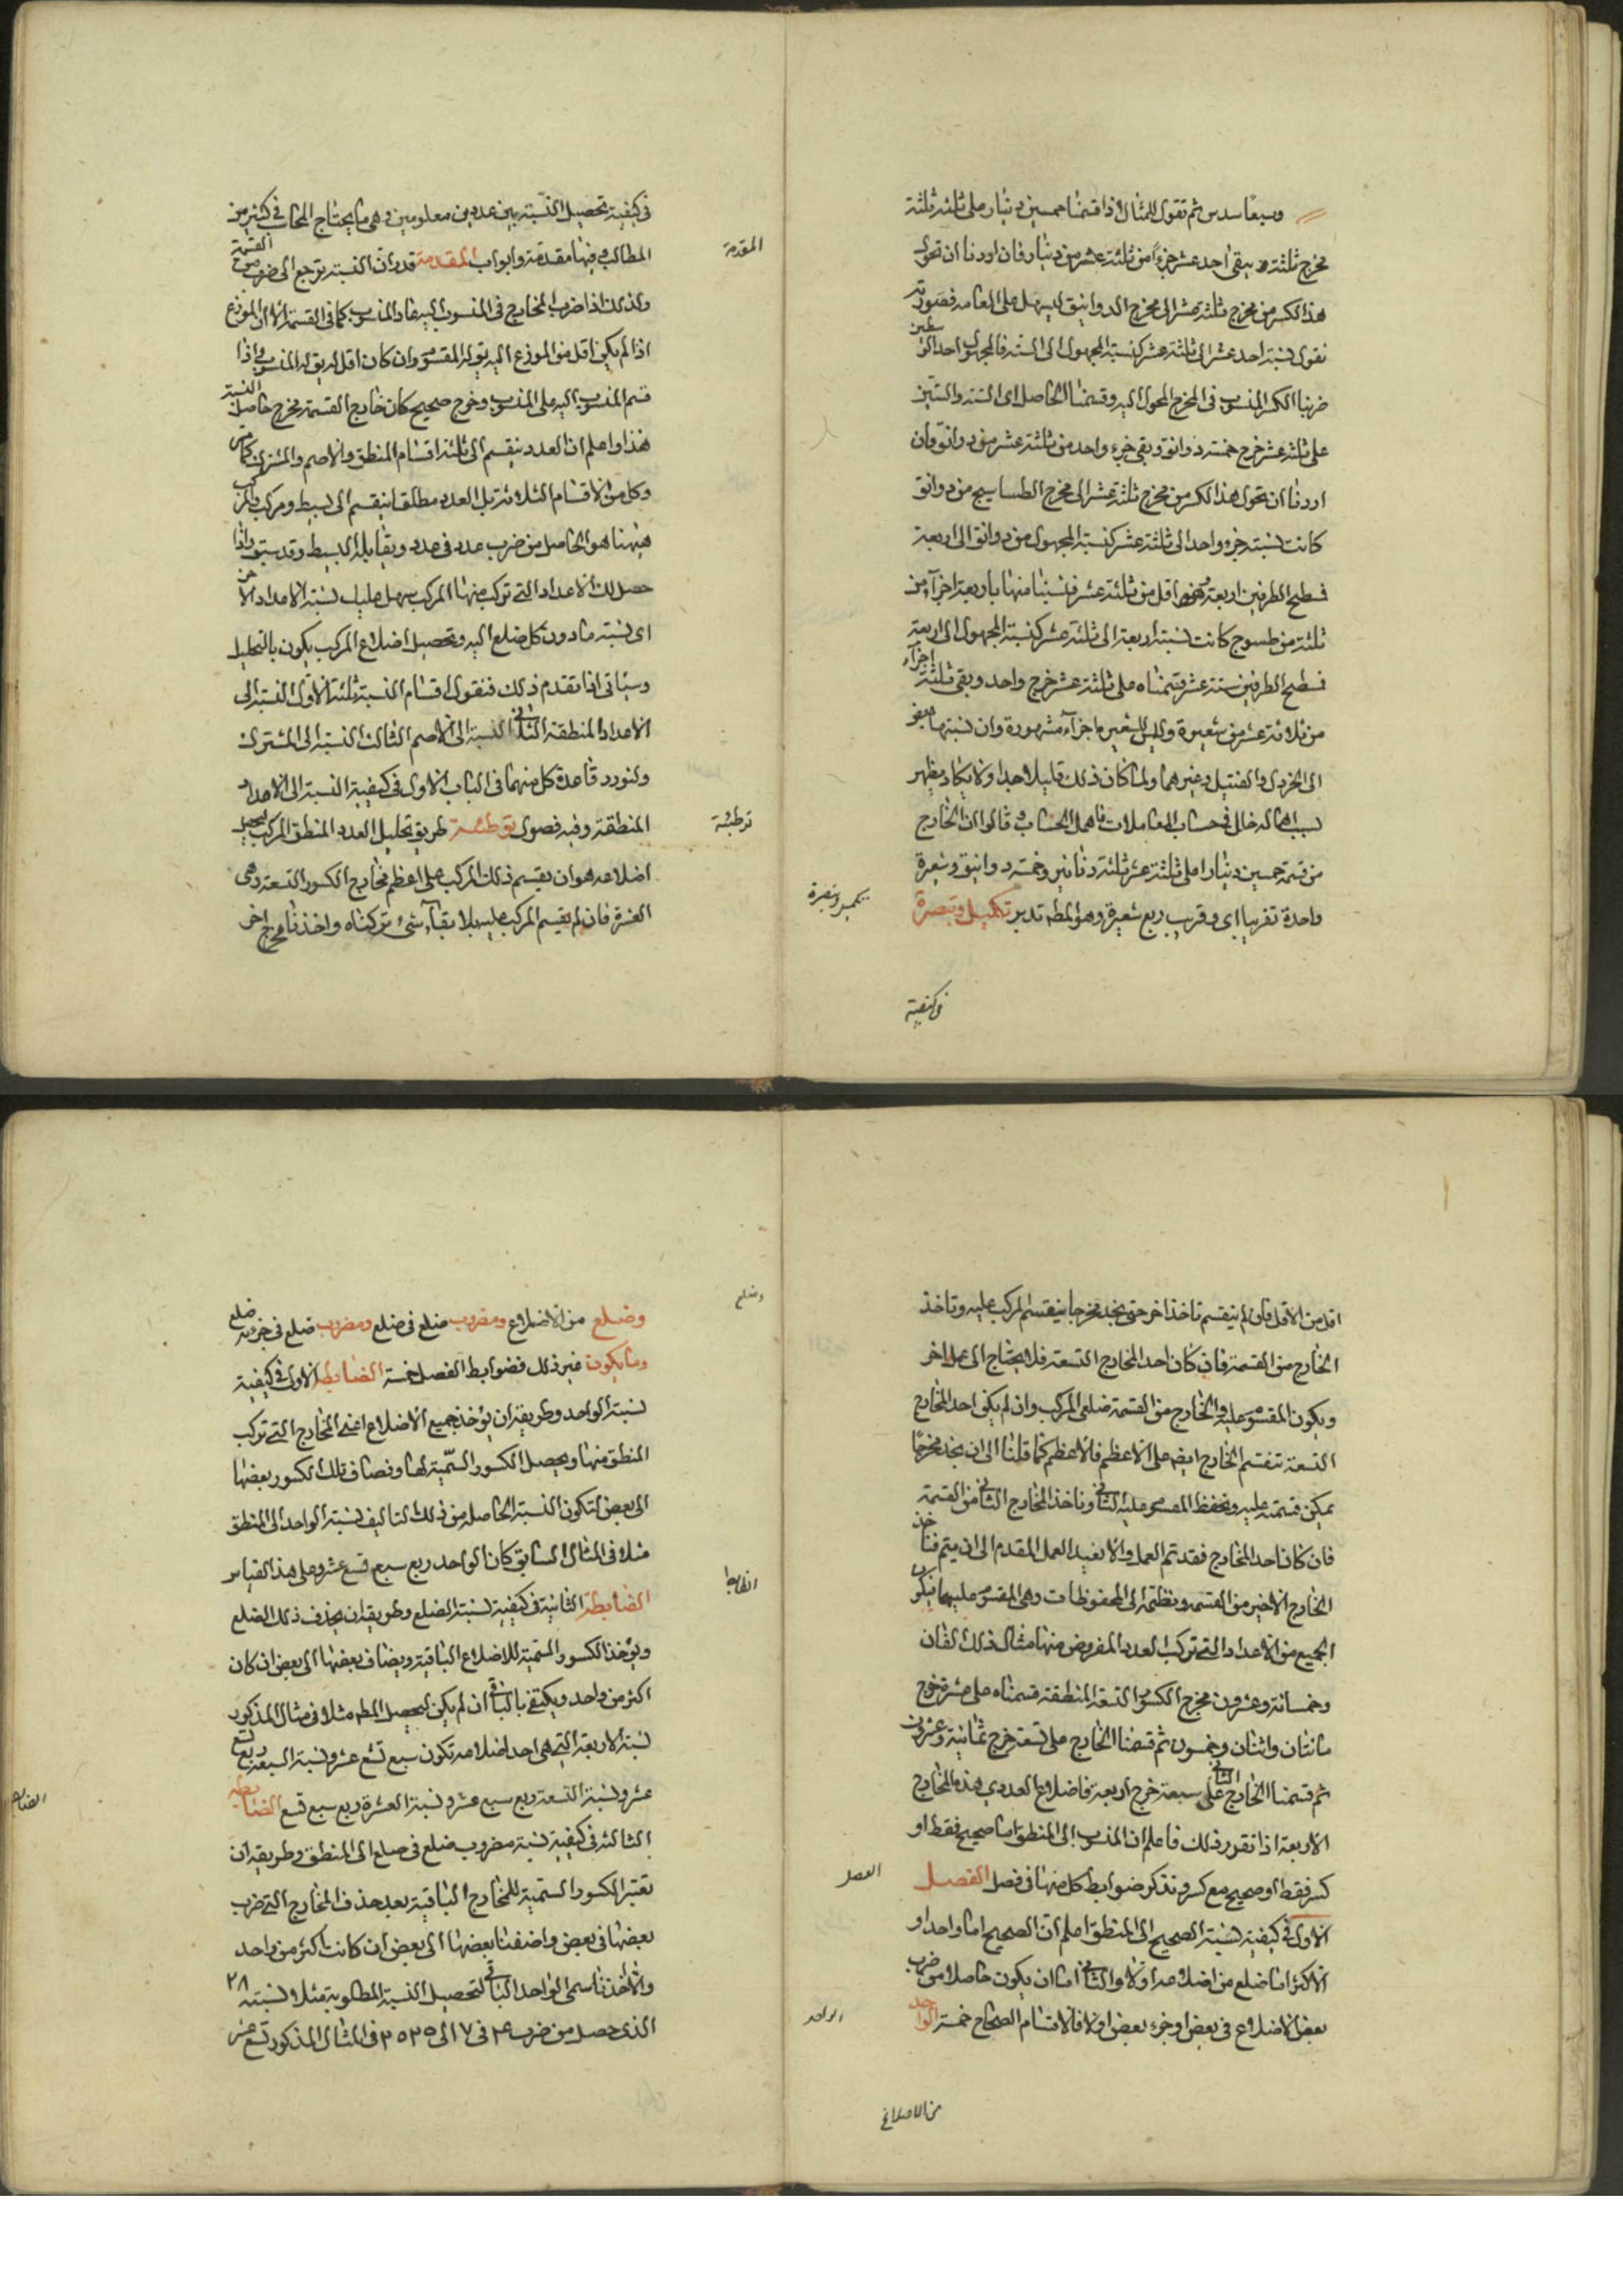 وسبعا سدس ثم تقول للمثال اذا قسمنا خمسين دينار على ثلثة ثلثة
مخرج ثلثة و يبقى احد عشر جزءًا من ثلثة عشر من دينار فان اردنا ان نحول
هذا الكسر من مخرج ثلثة عشر الى مخرج الدوانيق ليسهل على العامه فصورته
نقول نسبة احد عشر الى ثلثة عشر كنسبة المجهول الى الستة فالمجهول احد الوسطين
ضربنا الكسر المنسوب فى المخرج المحول اليه وقسمنا الحاصل اى الستة والستين
على ثلثة عشر خرج خمسة دوانق وبقى جزء واحد من ثلثة عشر من دوانق وان
اردنا ان نحول هذا الكسر من مخرج ثلثة عشر الى مخرج الطساسيج من دوانق
كانت نسبة جزء واحد الى ثلثة عشر كنسبة المجهول من دوانق الى اربعة
فسطح الطرفين اربعة اقل من ثلثة عشر فنسبنا منها باربعة اجزآء من
ثلثة من طسوج كانت نسبة اربعة الى ثلثة عشر كنسبة المجهول الى اربعة
فسطح الطرفين ستة عشر قسمناه على ثلثة عشر خرج واحد وبقى ثلثة اجزآء
من ثلاثة عشر من شعيرة وليس للشعير اجزآء مشهورة وان نسبها بعض
الى الخردل والفتيل وغيرهما ولما كان ذلك قليلا جدا ولا يكاد يظهر
لسبب اهماله خلل فى حساب المعاملات فاهمل الحساب وقالوا ان الخارج
من قسمة خمسين دينارا على ثلثة عشر ثلثة دنانير وخمسة دوانيق وشعيرة
واحدة تقريبا اى وقريب ربع شعيرة وهو المط تدبر تكميل وتبصرة
تكميل وتبصرة
فى كيفية
فى كيفية تحصيل النسبة بين عددين معلومين وهى ما يحتاج المحاسب فى كثير من
المطالب وفيها مقدمة وابواب المقدمة قدر ان النسبة ترجع الى ضرب من القسمة
المقدمة
ولذلك اذا ضرب المخارج فى المنسوب اليه عاد المنسوب كما فى القسمة الا ان الموزع
اذا لم يكن اقل من الموزع اليه يق له المقسوم وان كان اقل له يق له المنسوب واذا
قسم المنسوب اليه على المنسوب وخرج صحيح كان خارج القسمة مخرج حاصل النسبة
هذا واعلم ان العدد ينقسم الى ثلثة اقسام المنطق والاصم والمشترك كما مر
وكل من الاقسام الثلاثة بل العدد مطلقا ينقسم الى بسيط ومركب والمركب
ههنا هو الحاصل من ضرب عدد فى عدد ويقابله البسيط وقد سبق واذا
حصل لك الاعداد التى تركب منها المركب سهل عليك نسبة الاعداد الاخر
اى نسبة ما دون كل ضلع اليه وتحصيل اضلاع المركب يكون بالتحليل
وسياتى اذا تقدم ذلك فنقول اقسام النسبة ثلثة الاول النسبة الى
الاعداد المنطقة الثانى النسبة الى الاصم الثالث النسبة الى المشترك
ولنورد قاعدة كل منهما فى الباب الاول فى كيفية النسبة الى الاعداد
المنطقة وفيه فصول توطئة طريق تحليل العدد المنطق المركب لتحصيل
توطئة
اضلاعه هو ان يقسم ذلك المركب على اعظم مخارج الكسور التسعة وهى
العشرة فان لم يقسم المركب عليه بلا بقآء شئ تركناه واخذنا مخرج اخر
اقل من الاول فان لم ينقسم ناخذ اخر حتى نجد مخرجا ينقسم المركب عليه وناخذ
الخارج من القسمة فان كان احد المخارج التسعة فلا يحتاج الى عمل اخر
ويكون المقسوم عليه والخارج من القسمة ضلعى المركب وان لم يكن احد المخارج
التسعة تقسم الخارج ايضا على الاعظم فالاعظم كما قلنا الى ان نجد مخرجًا
يمكن قسمته عليه ونحفظ المقسوم عليه الثانى وناخذ الخارج الثانى من القسمة
فان كان احد المخارج فقد تم العمل والا نعيد العمل المقدم الى ان يتم فناخذ
الخارج الاخير من القسمة ونظمه الى المحفوظات وهى المقسوم عليهما فيكون
الجميع من الاعداد التى تركب العدد المفروض منها مثال ذلك الفان
وخمسمائة وعشرون مخرج الكسور التسعة المنطقة قسمناه على عشرة خرج
مائتان واثنان وخمسون ثم قسمنا الخارج على تسعة خرج ثمانية وعشرون
ثم قسمنا الخارج الثانى على سبعة خرج اربعة فاضلاع العدد هى هذه المخارج
الاربعة اذا تقرر ذلك فاعلم ان المنسوب الى المنطق اما صحيح فقط او
كسر فقط او صحيح مع كسر ونذكر ضوابط كل منها فى فصل الفصل
الفصل
الاول فى كيفية نسبة الصحيح الى المنطق اعلم ان الصحيح اما واحد او
الاكثر اما ضلع من اضلاعه او لا والثانى اما ان يكون حاصلا من ضرب
بعض الاضلاع فى بعض او جزء بعض او لا فالاقسام الصحاح خمسة الواحد
الواحد
من الاضلاع
وضلع من الاضلاع ومضروب ضلع فى ضلع ومضروب ضلع فى جزء ضلع
وضلع
وما يكون غير ذلك فضوابط الفصل خمسة الضابطة الاولى فى كيفية
نسبة الواحد وطريقه ان يؤخذ جميع الاضلاع اعنى المخارج التى تركب
المنطق منها ويحصل الكسور السّمية لها وتضاف تلك الكسور بعضها
الى بعض لتكون النسبة الحاصلة من ذلك التاليف نسبة الواحد الى المنطق
مثلا فى المثال السابق كان الواحد ربع سبع تسع عشر وعلى هذا القياس
الضابطة الثانية فى كيفية نسبة الضلع وطريقه ان يحذف ذلك الضلع
الضابطة
ويؤخذ الكسور السّمية للاضلاع الباقية ويضاف بعضها الى بعض ان كان
اكثر من واحد ويكتفى بالباقى ان لم يكن ليحصل المط مثلا فى مثال المذكور
نسبة الاربعة التى هى احد اضلاعه تكون سبع تسع عشر ونسبة السبعة ربع تسع
عشر ونسبة التسعة ربع سبع عشر ونسبة العشرة ربع سبع تسع الضابطة
الضابطة
الثالثة فى كيفية نسبة مضروب ضلع فى ضلع الى المنطق وطريقه ان
تعتبر الكسور السّمية للمخارج الباقية بعد حذف المخارج التى ضرب
بعضها فى بعض واضفنا بعضها الى بعض ان كانت اكثر من واحد
والا اخذنا سمى الواحد الباقى لتحصيل النسبة المطلوبة مثلا نسبة ٢٨
الذى حصل من ضرب ٤ فى ٧ الى ٢٥٢٠ فى المثال المذكور تسع عشر